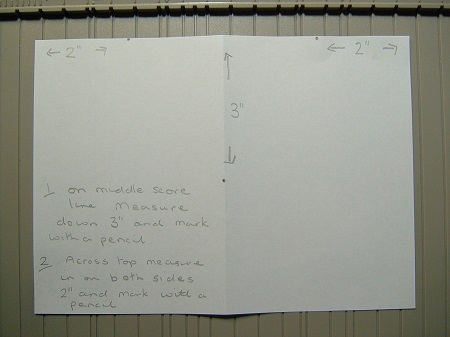 ← 2" →
← 2" →
3"
1 on middle score
line measure
down 3" and mark
with a pencil
2 Across top measure
in on both sides
2" and mark with a
pencil